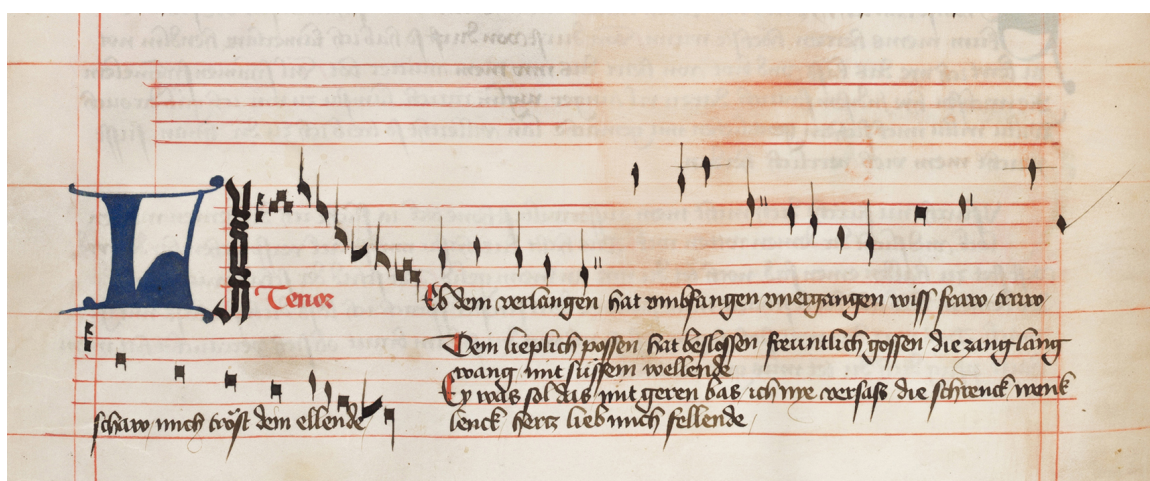 Tenor
LIeb dein verlangen / hat vmbfangen vnergangen wiss fraw / traw /
Dein lieplich possen / hat beslossen / freuntlich gossen / die zung lang
wang / mit süssem wellende
Ey was sol das / mit geren bas / ich me versass / die schrenck wenk
schaw / mich tröst dein ellende /
lenck / hertz lieb mich fellende /